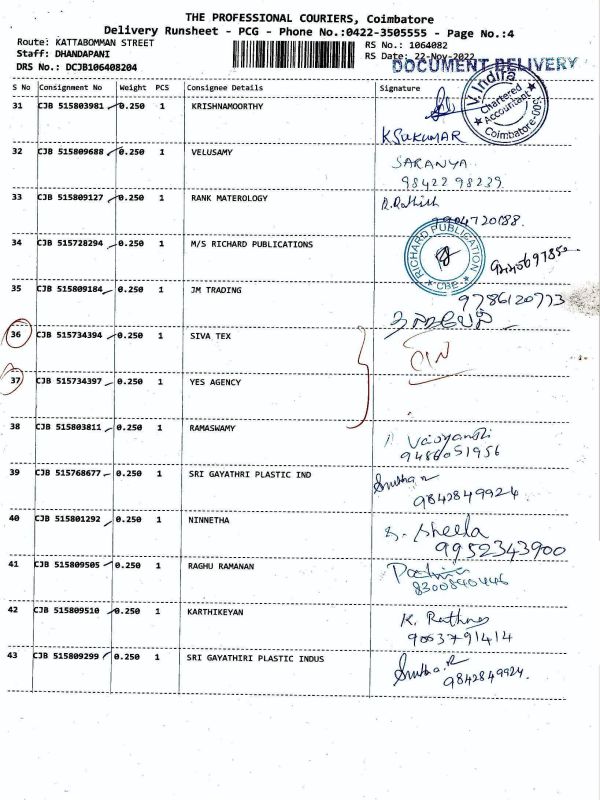 THE PROFESSIONAL COURIERS, Coimbatore
Delivery Runsheet - PCG - Phone No.:0422-3505555 - Page No.:4
Route: KATTABOMMAN STREET RS No.: 1064082
Staff: DHANDAPANI RS Date: 22-Nov-2022
DRS No.: DCJB106408204 DOCUMENT DELIVERY
S No Consignment No Weight PCS Consignee Details Signature
V. Indira Chartered Accountant Coimbatore
31 CJB 515803981 0.250 1 KRISHNAMOORTHY
K SUKUMAR
32 CJB 515809688 0.250 1 VELUSAMY SARANYA
98422 98239
33 CJB 515809127 0.250 1 RANK MATEROLOGY
34 CJB 515728294 0.250 1 M/S RICHARD PUBLICATIONS
RICHARD PUBLICATION CBE
35 CJB 515809184 0.250 1 JM TRADING
9786120773
36 CJB 515734394 0.250 1 SIVA TEX
37 CJB 515734397 0.250 1 YES AGENCY
38 CJB 515803811 0.250 1 RAMASWAMY
9486051956
39 CJB 515768677 0.250 1 SRI GAYATHRI PLASTIC IND
9842849924
40 CJB 515801292 0.250 1 NINNETHA S. Sheela
9952343900
41 CJB 515809505 0.250 1 RAGHU RAMANAN
8300840446
42 CJB 515809510 0.250 1 KARTHIKEYAN
9053791414
43 CJB 515809299 0.250 1 SRI GAYATHIRI PLASTIC INDUS
9842849924